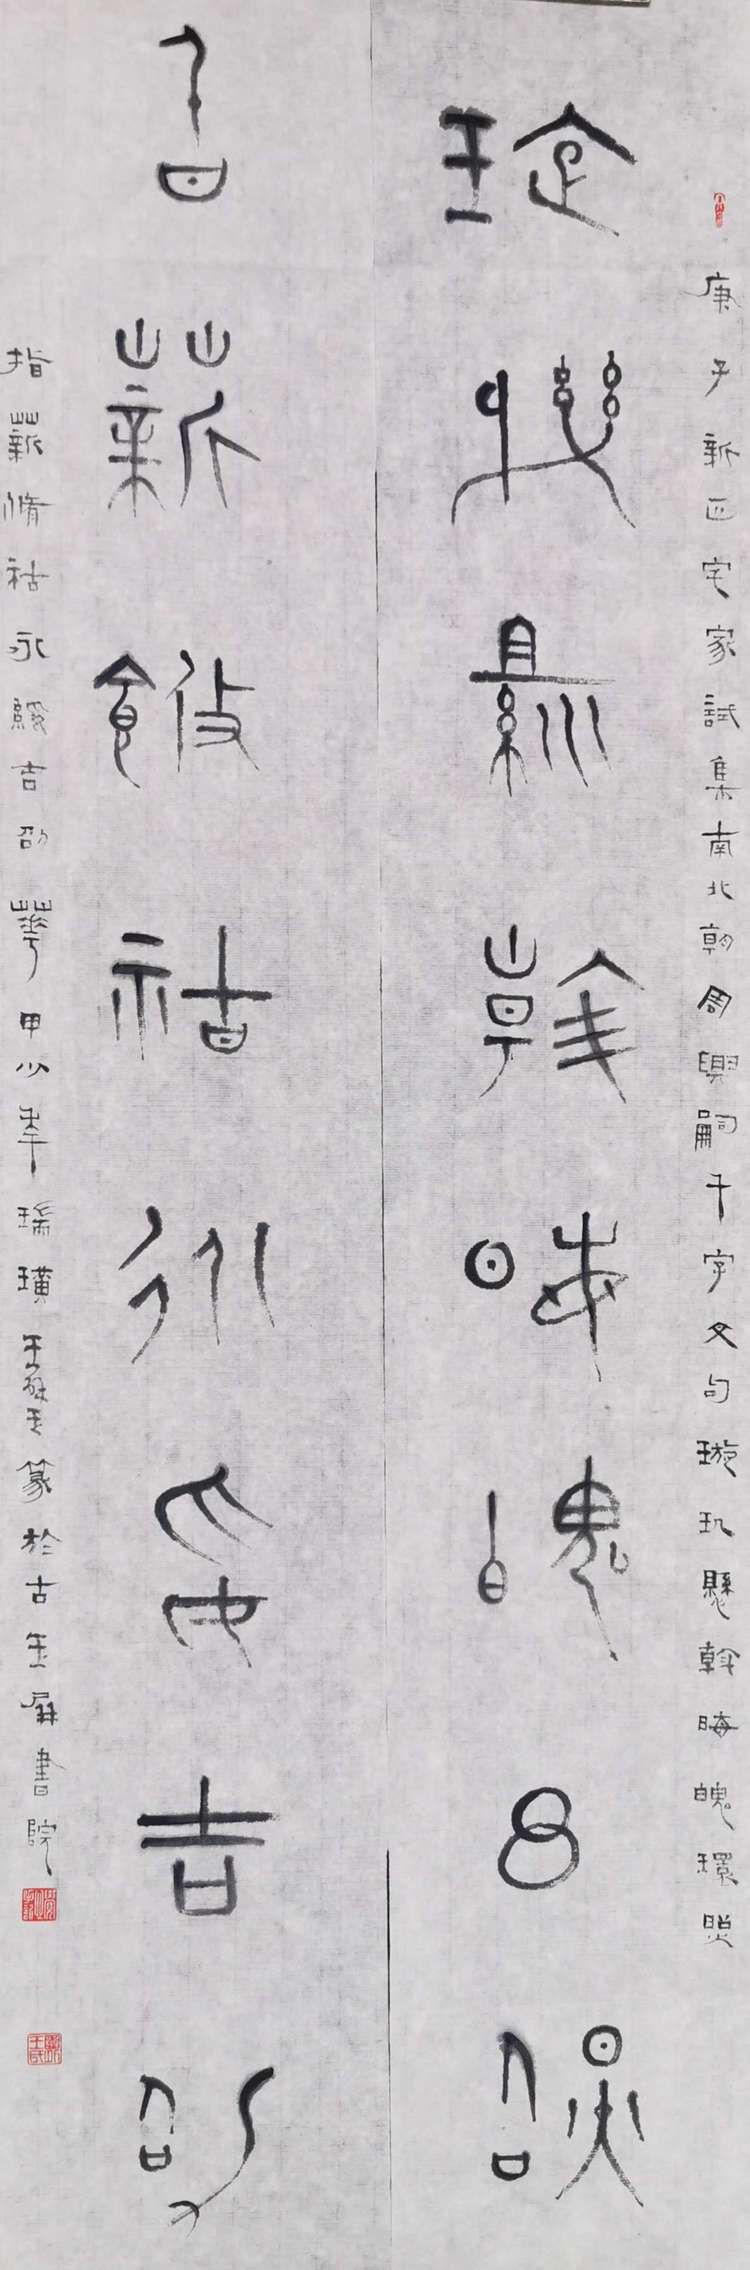 庚子新正宅家試集南北朝周興嗣千字文句璇玑懸斡晦魄環照
璇璣懸斡晦魄環照
指薪脩祜永綏吉劭
指薪脩祜永綏吉劭華甲少年瑞璜篆於古玉屏書院